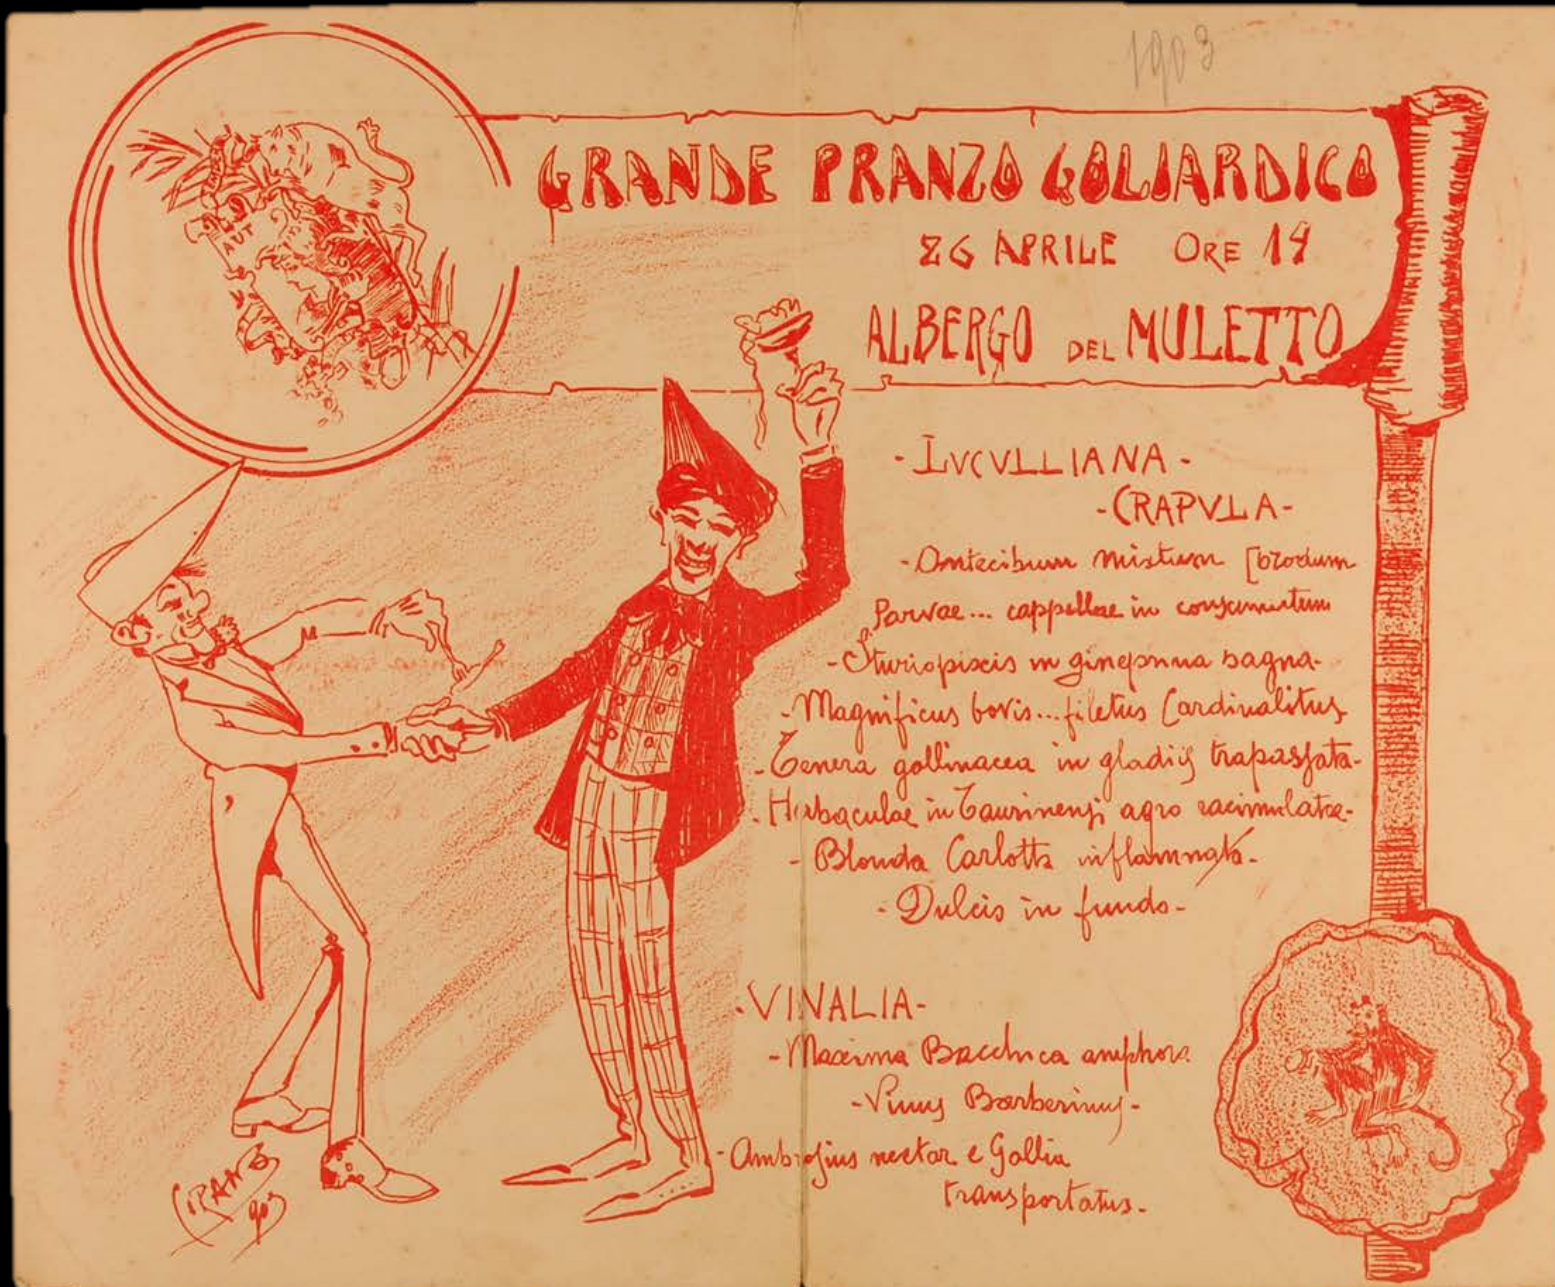 1903
AUT
GRANDE PRANZO GOLIARDICO
26 APRILE ORE 19
ALBERGO DEL MULETTO
- LVCVLLIANA -
- CRAPVLA -
- Antecibum mistum [brodum
Parvae... cappellae in
- Sturiopiscis in
- Magnificus bovis... filetus Cardinalitus
- Tenera gallinacea in gladiis trapassata -
- Herbaculae in Taurinensi agro racimulatae -
- Blonda Carlotta inflammata -
- Dulcis in fundo -
- VINALIA -
- Maxima Bacchica amphora
- Vinus Barberinus -
- Ambrosius nectar e Gallia
transportatus -
903